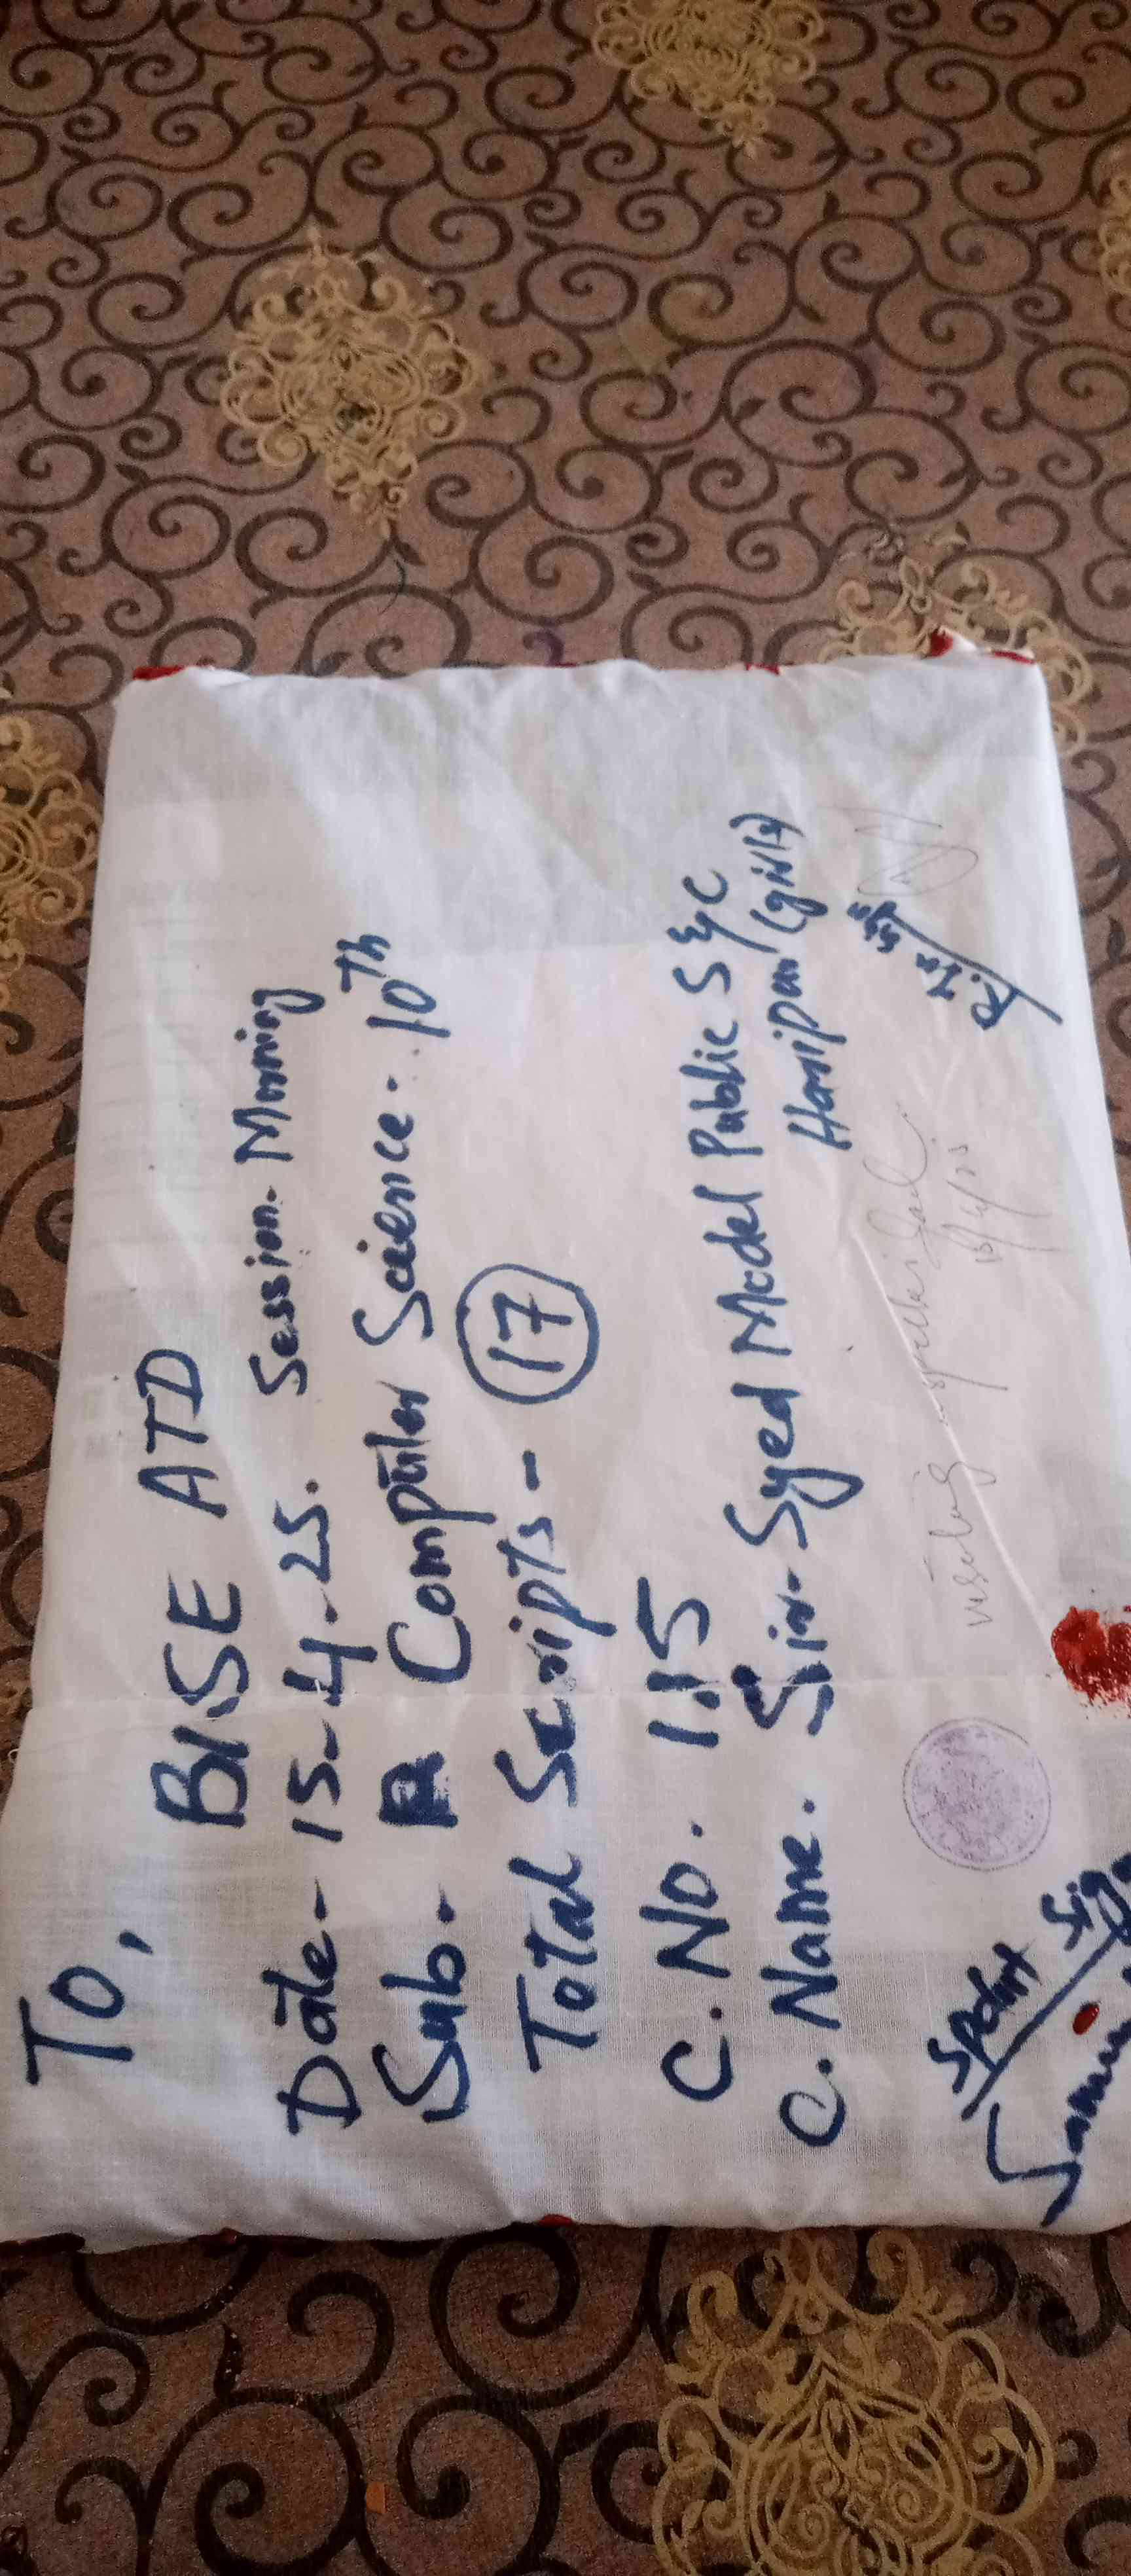 To,
BISE ATD
Date- 15-4-25. Session- Morning
Sub- Computer Science- 10Th
Total Scripts- 17
C. No. 115
C. Name. Sir Syed Model Public S & C
Haripur (girls)
15/4/25
Supdtt Sig